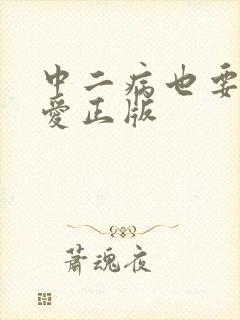 中二病也要
愛正版
蕭魂夜